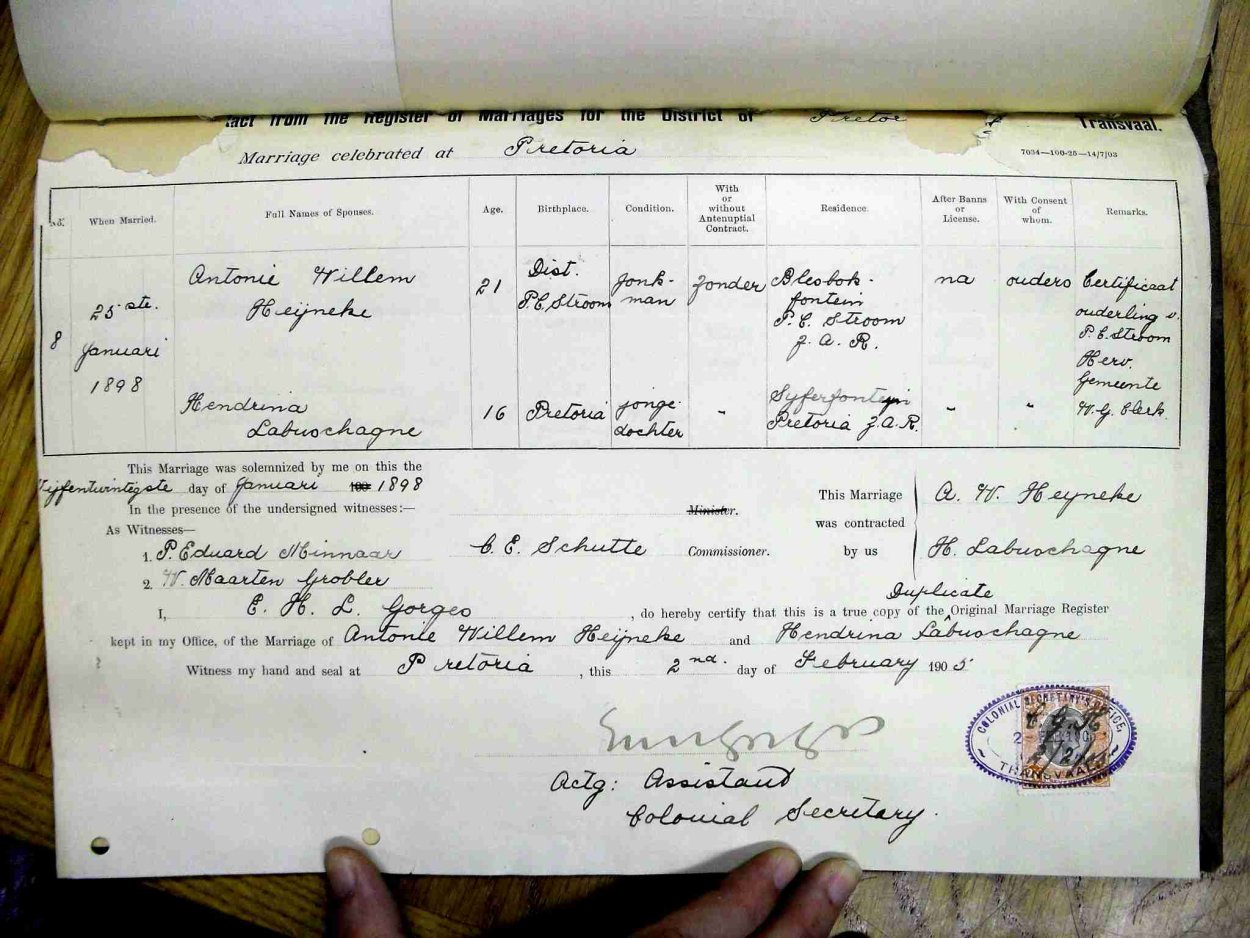 act from the Register of Marriages for the District of Pretor Transvaal.
Marriage celebrated at Pretoria
7034—100-25—14/7/03
No. When Married. Full Names of Spouses. Age. Birthplace. Condition. With or without Antenuptial Contract. Residence. After Banns or License. With Consent of whom. Remarks.
8
25ste.
Januari
1898
Antonie Willem
Heijneke
21
Dist.
P.E. Stroom
Jonk-
man
Zonder
Blesbok-
fontein
P. E. Stroom
Z. A. R.
na
ouders
Certificaat
ouderling v.
P. E. Stroom
Herv.
Gemeente
W. G. Clerk.
Hendrina
Labuschagne
16
Pretoria
Jonge
dochter
"
Syferfontein
Pretoria Z.A.R.
"
"
This Marriage was solemnized by me on this the
Vijfentwintigste day of Januari 190 1898
In the presence of the undersigned witnesses:—
Minister.
As Witnesses—
1. P. Eduard Minnaar
C. E. Schutte Commissioner.
2. W. Maarten Grobler
This Marriage
was contracted
by us
A. W. Heyneke
H. Labuschagne
Duplicate
I, E. H. L. Gorges, do hereby certify that this is a true copy of the ^ Original Marriage Register
kept in my Office, of the Marriage of Antonie Willem Heijneke and Hendrina Labuschagne
Witness my hand and seal at Pretoria, this 2nd. day of February 1905
Actg: Assistant
Colonial Secretary.
COLONIAL SECRETARY'S OFFICE,
TRANSVAAL